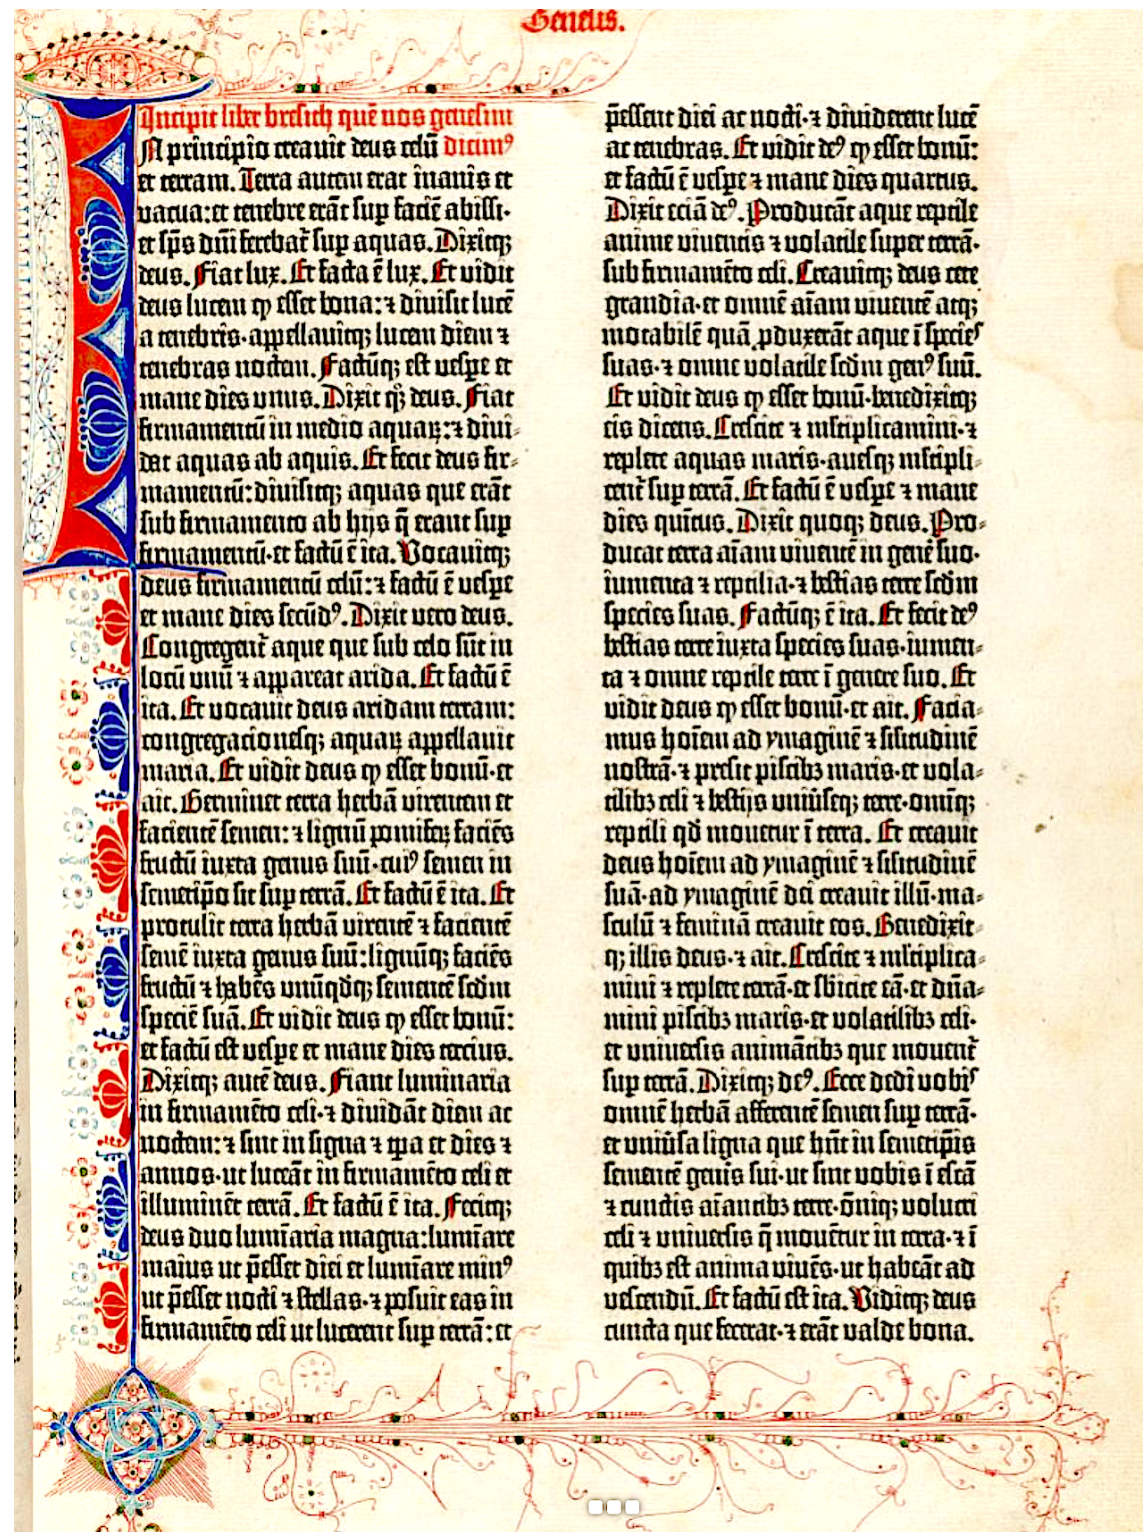 Genesis.
Incipit liber bresith quē nos genesim
In principio creauit deus celū dicimꝰ
et terram. Terra autem erat inanis et
vacua: et tenebre erāt suꝑ faciē abissi·
et spūs dn̄i ferebat̄ suꝑ aquas. Dixitqꝫ
deus. Fiat lux. Et facta ē lux. Et vidit
deus lucem ꝙ esset bona: ⁊ diuisit lucē
a tenebris·appellauitqꝫ lucem diem ⁊
tenebras noctem. Factūqꝫ est vespe et
mane dies vnus. Dixit qꝫ deus. Fiat
firmamentū in medio aquaꝝ:⁊ diui-
dat aquas ab aquis. Et fecit deus fir-
mamentū: diuisitqꝫ aquas que erāt
sub firmamento ab hijs q̄ erant suꝑ
firmamentū·et factū ē ita. Vocauitqꝫ
deus firmamentū celū:⁊ factū ē vespe
et mane dies secūdꝰ. Dixit vero deus.
Congregent̄ aque que sub celo sūt in
locū vnū ⁊ appareat arida. Et factū ē
ita. Et vocauit deus aridam terram:
congregacionesqꝫ aquaꝝ appellauit
maria. Et vidit deus ꝙ esset bonū·et
ait. Germinet terra herbā virentem et
facientē semen:⁊ lignū pomifeꝝ faciēs
fructū iuxta genus suū·cuiꝰ semen in
semetip̄o sit suꝑ terrā. Et factū ē ita. Et
protulit terra herbā virentē ⁊ facientē
semē iuxta genus suū: lignūqꝫ faciēs
fructū ⁊ habēs vnūqdqꝫ sementē scdm
speciē suā. Et vidit deus ꝙ esset bonū:
et factū est vespe et mane dies tercius.
Dixitqꝫ autē deus. Fiant luminaria
in firmamēto celi·⁊ diuidāt diem ac
noctem:⁊ sint in signa ⁊ tꝑa et dies ⁊
annos·ut luceāt in firmamēto celi et
illuminēt terrā. Et factū ē ita. Fecitqꝫ
deus duo lumīaria magna: lumīare
maius ut p̄esset diei et lumīare minꝰ
ut p̄esset nocti ⁊ stellas·⁊ posuit eas in
firmamēto celi ut lucerent suꝑ terrā: et
p̄essent diei ac nocti·⁊ diuiderent lucē
ac tenebras. Et vidit deꝰ ꝙ esset bonū:
et factū ē vespe ⁊ mane dies quartus.
Dixit eciā deꝰ. Producāt aque reptile
anime viuentis ⁊ volatile super terrā·
sub firmamēto celi. Creauitqꝫ deus cete
grandia·et omnē aīam viuentē atqꝫ
motabilē quā ꝓduxerāt aque ī species
suas·⁊ omne volatile scdm genꝰ suū.
Et vidit deus ꝙ esset bonū·benedixitqꝫ
eis dicens. Crescite ⁊ mltiplicamini·⁊
replete aquas maris·auesqꝫ mltipli-
cent̄ suꝑ terrā. Et factū ē vespe ⁊ mane
dies quītus. Dixit quoqꝫ deus. Pro-
ducat terra aīam viuentē in genē suo·
iumenta ⁊ reptilia·⁊ bestias terre scdm
species suas. Factūqꝫ ē ita. Et fecit deꝰ
bestias terre iuxta species suas·iumen-
ta ⁊ omne reptile terre ī genere suo. Et
vidit deus ꝙ esset bonū·et ait. Facia-
mus hoīem ad ymaginē ⁊ slitudinē
nostrā·⁊ presit piscibꝫ maris·et vola-
tilibꝫ celi ⁊ bestijs vniūseqꝫ terre·omīqꝫ
reptili qd mouetur ī terra. Et creauit
deus hoīem ad ymaginē ⁊ slitudinē
suā·ad ymaginē dei creauit illū·ma-
sculū ⁊ feminā creauit eos. Benedixit-
qꝫ illis deus·⁊ ait. Crescite ⁊ mltiplica-
mini ⁊ replete terrā·et sbicite eā·et dn̄a-
mini piscibꝫ maris·et volatilibꝫ celi·
et vniuersis animātibꝫ que mouent̄
suꝑ terrā. Dixitqꝫ deꝰ. Ecce dedi vobis
omnē herbā afferentē semen suꝑ terrā·
et vniūsa ligna que hn̄t in semetip̄is
sementē genīs sui·ut sint vobis ī escā
⁊ cunctis aīantibꝫ terre·ōniqꝫ volucri
celi ⁊ vniuersis q̄ mouētur in terra·⁊ ī
quibꝫ est anima viuēs·ut habeāt ad
vescendū. Et factū est ita. Viditqꝫ deus
cuncta que fecerat·⁊ erāt valde bona.